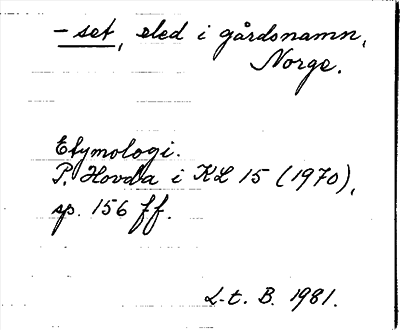 - set, eled i gårdsnamn,
Norge.
Etymologi.
P. Hovda i KL 15 (1970),
sp. 156 ff.
L-t. B. 1981.